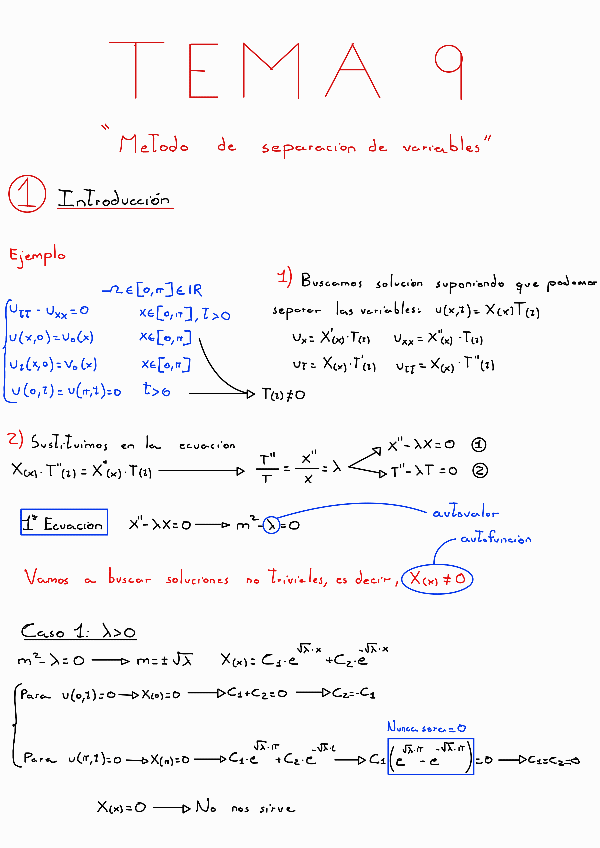 TEMA 9
"Metodo de separacion de variables"
① Introducción
Ejemplo
Ω∈[0,π]∈ℝ
u_tt - u_xx = 0 x∈[0,π], t>0
u(x,0)=u₀(x) x∈[0,π]
u_t(x,0)=v₀(x) x∈[0,π]
u(0,t)=u(π,t)=0 t>0 → T(t)≠0
1) Buscamos solucion suponiendo que podemos
separar las variables: u(x,t)=X(x)T(t)
u_x = X'(x)·T(t) u_xx = X''(x)·T(t)
u_t = X(x)·T'(t) u_tt = X(x)·T''(t)
2) Sustituimos en la ecuacion
X(x)·T''(t)=X''(x)·T(t) → T''/T = X''/X = λ
X''-λX=0 ①
T''-λT=0 ②
1ª Ecuacion X''-λX=0 → m²-λ=0
autovalor
autofunción
Vamos a buscar soluciones no triviales, es decir, X(x)≠0
Caso 1: λ>0
m²-λ=0 → m=±√λ X(x)=C₁·e^(√λ·x)+C₂·e^(-√λ·x)
Para u(0,t)=0 → X(0)=0 → C₁+C₂=0 → C₂=-C₁
Nunca sera=0
Para u(π,t)=0 → X(π)=0 → C₁·e^(√λ·π)+C₂·e^(-√λ·t) → C₁(e^(√λ·π)-e^(-√λ·π))=0 → C₁=C₂=0
X(x)=0 → No nos sirve